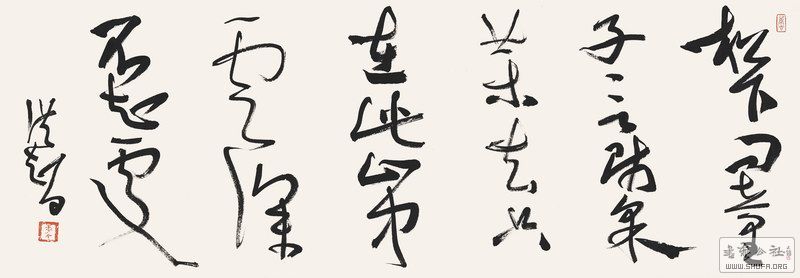 松下問童
子言師采
藥去只
在此山中
雲深
不知處
書法公社
WWW.SHUFA.ORG